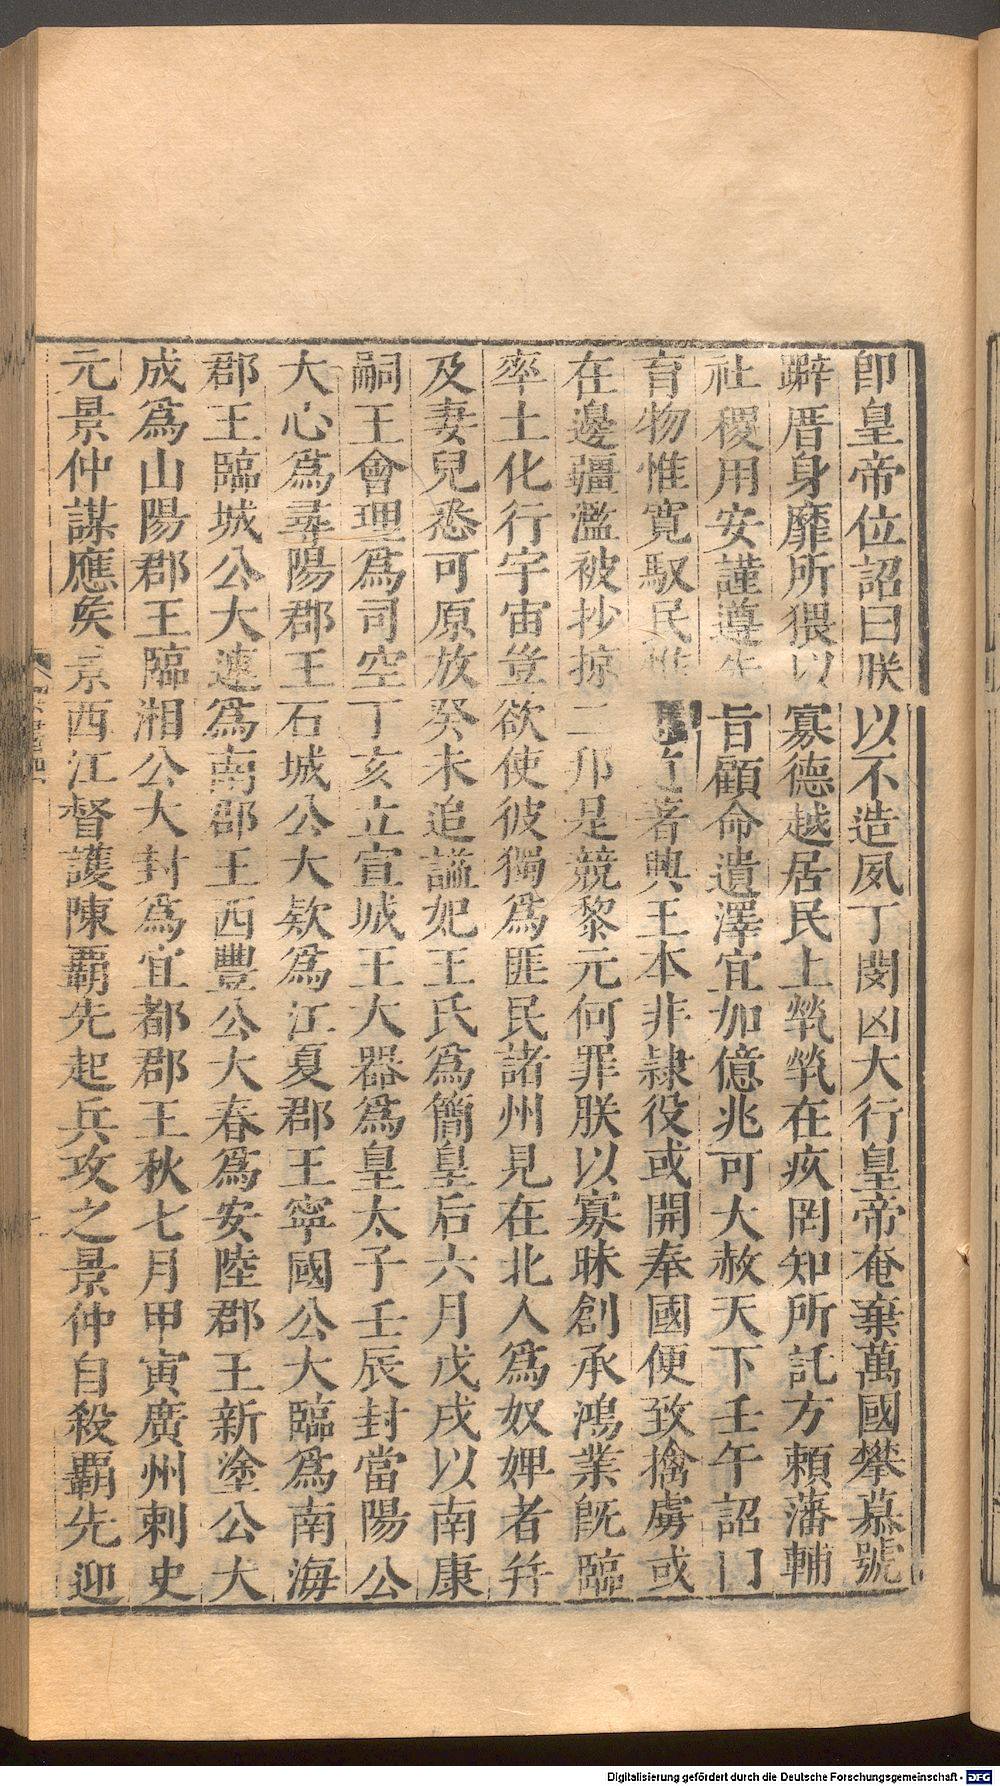 卽皇帝位詔曰朕以不造夙丁閔凶大行皇帝奄棄萬國攀慕號
躃厝身靡所猥以寡德越居民上煢煢在疚罔知所託方賴藩輔
社稷用安謹遵先旨顧命遺澤宜加億兆可大赦天下壬午詔門
育物惟寬馭民惟著興王本非隷役或開奉國便致擒虜或
在邊疆濫被抄掠二邦是競黎元何罪朕以寡昧創承鴻業旣臨
率土化行宇宙豈欲使彼獨爲匪民諸州見在北人爲奴婢者幷
及妻兒悉可原放癸未追諡妃王氏爲簡皇后六月戊戌以南康
嗣王會理爲司空丁亥立宣城王大器爲皇太子壬辰封當陽公
大心爲尋陽郡王石城公大款爲江夏郡王寧國公大臨爲南海
郡王臨城公大連爲南郡王西豐公大春爲安陸郡王新塗公大
成爲山陽郡王臨湘公大封爲宜都郡王秋七月甲寅廣州刺史
元景仲謀應矦景西江督護陳覇先起兵攻之景仲自殺覇先迎
Digitalisierung gefördert durch die Deutsche Forschungsgemeinschaft - DFG